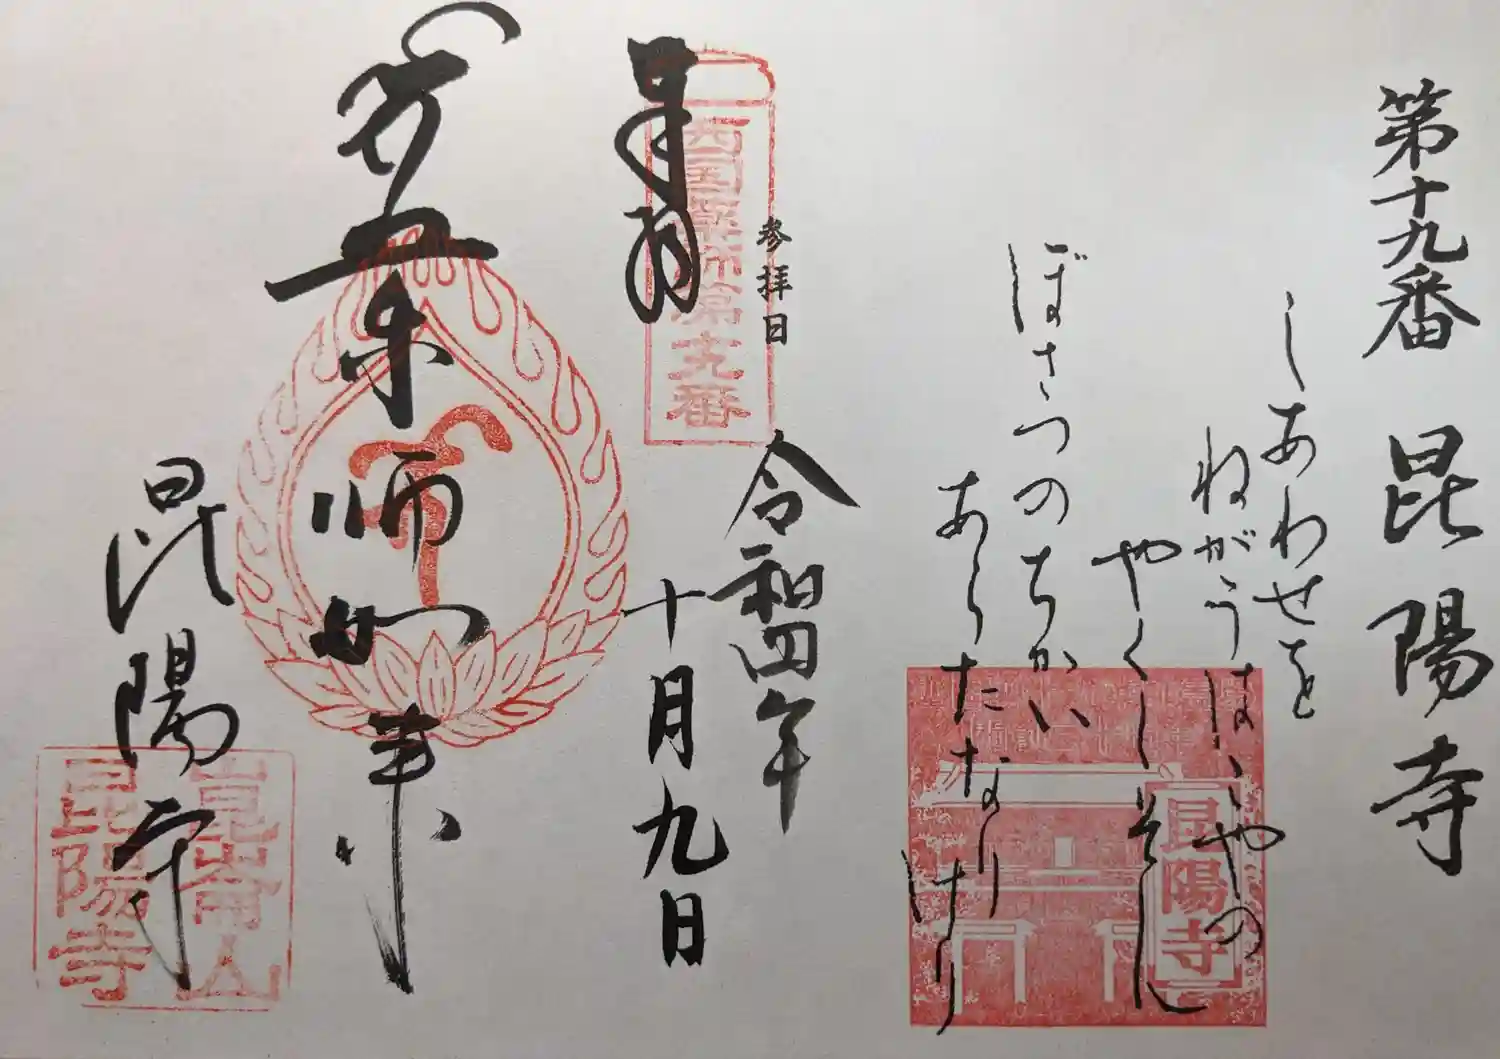 第十九番 昆陽寺
しあわせを
ねがうはゝやの
やくしそん
ぼさつのちかい
あらたなりけり
昆陽寺
参拝日
奉拝
西国薬師第十九番
令和四年
十月九日
薬師如来
昆陽寺
崑崙山
昆陽寺